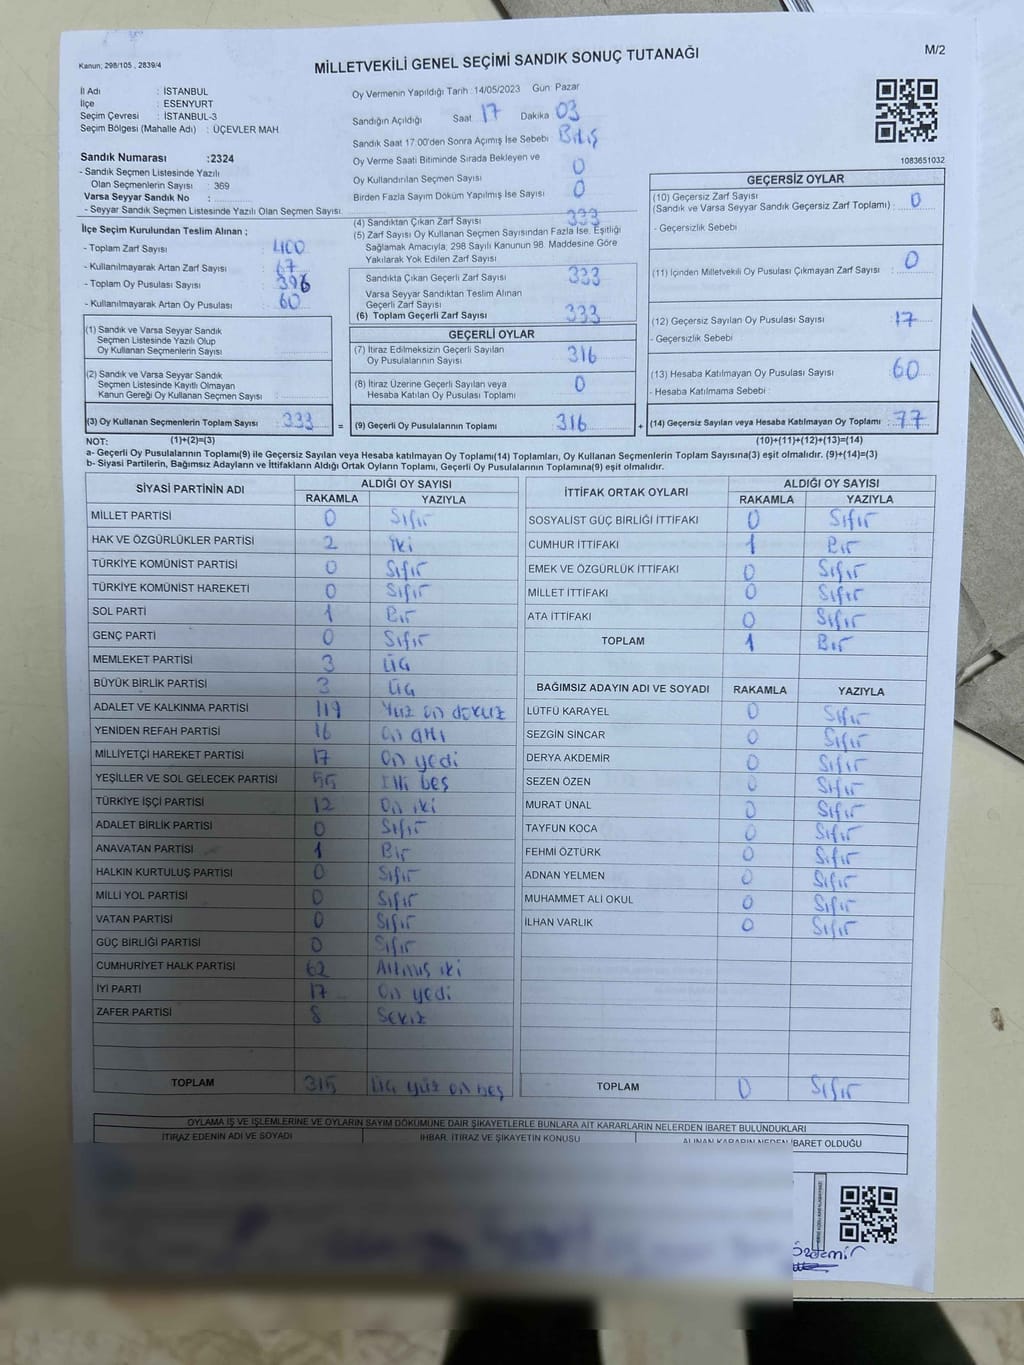 Kanun; 298/105 , 2839/4
MİLLETVEKİLİ GENEL SEÇİMİ SANDIK SONUÇ TUTANAĞI
M/2
İl Adı : İSTANBUL
İlçe : ESENYURT
Seçim Çevresi : İSTANBUL-3
Seçim Bölgesi (Mahalle Adı) : ÜÇEVLER MAH
Sandık Numarası :2324
- Sandık Seçmen Listesinde Yazılı
Olan Seçmenlerin Sayısı : 369
Varsa Seyyar Sandık No :
- Seyyar Sandık Seçmen Listesinde Yazılı Olan Seçmen Sayısı:
İlçe Seçim Kurulundan Teslim Alınan ;
- Toplam Zarf Sayısı : 400
- Kullanılmayarak Artan Zarf Sayısı : 67
- Toplam Oy Pusulası Sayısı : 396
- Kullanılmayarak Artan Oy Pusulası : 60
(1) Sandık ve Varsa Seyyar Sandık
Seçmen Listesinde Yazılı Olup
Oy Kullanan Seçmenlerin Sayısı :
(2) Sandık ve Varsa Seyyar Sandık
Seçmen Listesinde Kayıtlı Olmayan
Kanun Gereği Oy Kullanan Seçmen Sayısı :
(3) Oy Kullanan Seçmenlerin Toplam Sayısı : 333
Oy Vermenin Yapıldığı Tarih :14/05/2023 Gün Pazar
Sandığın Açıldığı Saat 17 Dakika 03
Sandık Saat 17:00'den Sonra Açımış İse Sebebi Bitiş
Oy Verme Saati Bitiminde Sırada Bekleyen ve
Oy Kullandırılan Seçmen Sayısı 0
Birden Fazla Sayım Döküm Yapılmış İse Sayısı 0
(4) Sandıktan Çıkan Zarf Sayısı 333
(5) Zarf Sayısı Oy Kullanan Seçmen Sayısından Fazla İse, Eşitliği
Sağlamak Amacıyla, 298 Sayılı Kanunun 98. Maddesine Göre
Yakılarak Yok Edilen Zarf Sayısı
Sandıkta Çıkan Geçerli Zarf Sayısı 333
Varsa Seyyar Sandıktan Teslim Alınan
Geçerli Zarf Sayısı
(6) Toplam Geçerli Zarf Sayısı 333
GEÇERLİ OYLAR
(7) İtiraz Edilmeksizin Geçerli Sayılan
Oy Pusulalarının Sayısı 316
(8) İtiraz Üzerine Geçerli Sayılan veya
Hesaba Katılan Oy Pusulası Toplamı 0
= (9) Geçerli Oy Pusulalarının Toplamı 316
1083651032
GEÇERSİZ OYLAR
(10) Geçersiz Zarf Sayısı
(Sandık ve Varsa Seyyar Sandık Geçersiz Zarf Toplamı) : 0
- Geçersizlik Sebebi
(11) İçinden Milletvekili Oy Pusulası Çıkmayan Zarf Sayısı : 0
(12) Geçersiz Sayılan Oy Pusulası Sayısı : 17
- Geçersizlik Sebebi
(13) Hesaba Katılmayan Oy Pusulası Sayısı : 60
- Hesaba Katılmama Sebebi :
+ (14) Geçersiz Sayılan veya Hesaba Katılmayan Oy Toplamı : 77
NOT: (1)+(2)=(3) (10)+(11)+(12)+(13)=(14)
a- Geçerli Oy Pusulalarının Toplamı(9) ile Geçersiz Sayılan veya Hesaba katılmayan Oy Toplamı(14) Toplamları, Oy Kullanan Seçmenlerin Toplam Sayısına(3) eşit olmalıdır. (9)+(14)=(3)
b- Siyasi Partilerin, Bağımsız Adayların ve İttifakların Aldığı Ortak Oyların Toplamı, Geçerli Oy Pusulalarının Toplamına(9) eşit olmalıdır.
SİYASİ PARTİNİN ADI ALDIĞI OY SAYISI
RAKAMLA YAZIYLA
MİLLET PARTİSİ 0 Sıfır
HAK VE ÖZGÜRLÜKLER PARTİSİ 2 iki
TÜRKİYE KOMÜNİST PARTİSİ 0 Sıfır
TÜRKİYE KOMÜNİST HAREKETİ 0 Sıfır
SOL PARTİ 1 Bir
GENÇ PARTİ 0 Sıfır
MEMLEKET PARTİSİ 3 Üç
BÜYÜK BİRLİK PARTİSİ 3 Üç
ADALET VE KALKINMA PARTİSİ 119 Yüz on dokuz
YENİDEN REFAH PARTİSİ 16 On altı
MİLLİYETÇİ HAREKET PARTİSİ 17 On yedi
YEŞİLLER VE SOL GELECEK PARTİSİ 55 Elli beş
TÜRKİYE İŞÇİ PARTİSİ 12 On iki
ADALET BİRLİK PARTİSİ 0 Sıfır
ANAVATAN PARTİSİ 1 Bir
HALKIN KURTULUŞ PARTİSİ 0 Sıfır
MİLLİ YOL PARTİSİ 0 Sıfır
VATAN PARTİSİ 0 Sıfır
GÜÇ BİRLİĞİ PARTİSİ 0 Sıfır
CUMHURİYET HALK PARTİSİ 62 Altmış iki
İYİ PARTİ 17 On yedi
ZAFER PARTİSİ 8 Sekiz
TOPLAM 315 Üç yüz on beş
İTTİFAK ORTAK OYLARI ALDIĞI OY SAYISI
RAKAMLA YAZIYLA
SOSYALİST GÜÇ BİRLİĞİ İTTİFAKI 0 Sıfır
CUMHUR İTTİFAKI 1 Bir
EMEK VE ÖZGÜRLÜK İTTİFAKI 0 Sıfır
MİLLET İTTİFAKI 0 Sıfır
ATA İTTİFAKI 0 Sıfır
TOPLAM 1 Bir
BAĞIMSIZ ADAYIN ADI VE SOYADI RAKAMLA YAZIYLA
LÜTFÜ KARAYEL 0 Sıfır
SEZGİN SİNCAR 0 Sıfır
DERYA AKDEMİR 0 Sıfır
SEZEN ÖZEN 0 Sıfır
MURAT ÜNAL 0 Sıfır
TAYFUN KOCA 0 Sıfır
FEHMİ ÖZTÜRK 0 Sıfır
ADNAN YELMEN 0 Sıfır
MUHAMMET ALİ OKUL 0 Sıfır
İLHAN VARLIK 0 Sıfır
TOPLAM 0 Sıfır
OYLAMA İŞ VE İŞLEMLERİNE VE OYLARIN SAYIM DÖKÜMÜNE DAİR ŞİKAYETLERLE BUNLARA AİT KARARLARIN NELERDEN İBARET BULUNDUKLARI
İTİRAZ EDENİN ADI VE SOYADI İHBAR, İTİRAZ VE ŞİKAYETİN KONUSU ALINAN KARARIN NEDEN İBARET OLDUĞU
Özdemir